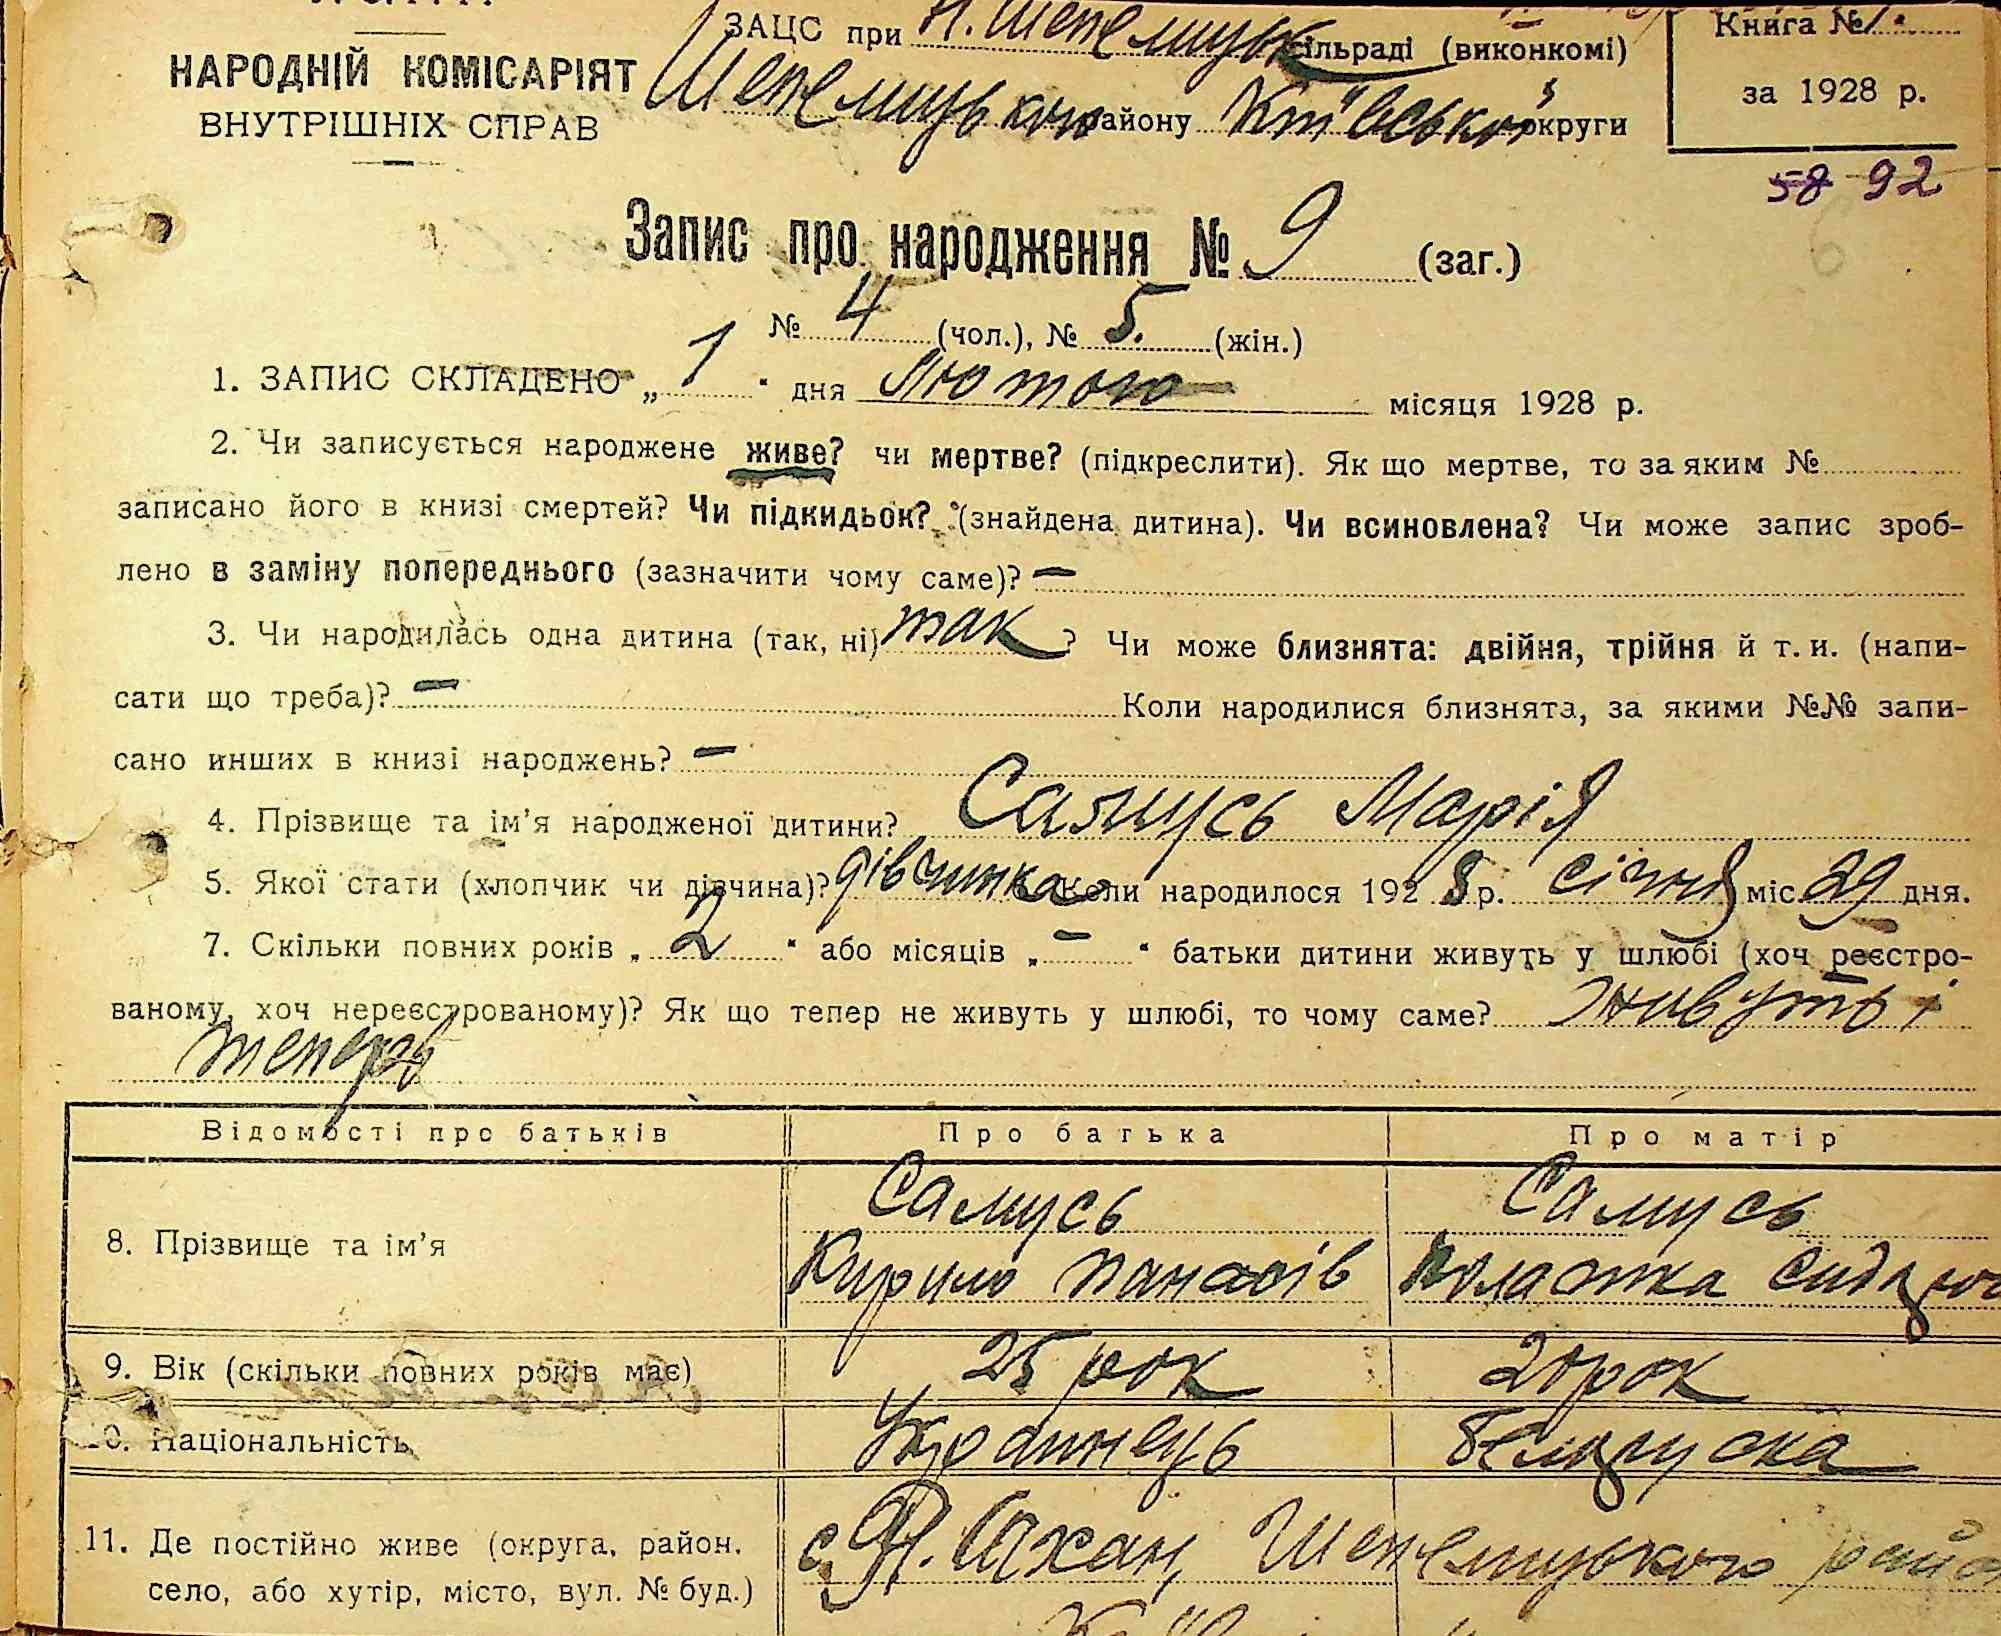 НАРОДНІЙ КОМІСАРІЯТ
ВНУТРІШНІХ СПРАВ
ЗАЦС при Н. Шепелицьк сільраді (виконкомі)
Шепелицького району Київської округи
Книга № 1.
за 1928 р.
58 92
Запис про народження № 9 (заг.)
№ 4 (чол.), № 5. (жін.)
1. ЗАПИС СКЛАДЕНО „ 1 “ дня Лютого місяця 1928 р.
2. Чи записується народжене живе? чи мертве? (підкреслити). Як що мертве, то за яким №
записано його в книзі смертей? Чи підкидьок? (знайдена дитина). Чи всиновлена? Чи може запис зроб-
лено в заміну попереднього (зазначити чому саме)? —
3. Чи народилась одна дитина (так, ні) так ? Чи може близнята: двійня, трійня й т. и. (напи-
сати що треба)? — Коли народилися близнята, за якими №№ запи-
сано инших в книзі народжень? —
4. Прізвище та ім’я народженої дитини? Самусь Марія
5. Якої стати (хлопчик чи дівчина)? дівчинка Коли народилося 1928 р. січня міс. 29 дня.
7. Скільки повних років „ 2 “ або місяців „ — “ батьки дитини живуть у шлюбі (хоч реєстро-
ваному, хоч нереєстрованому)? Як що тепер не живуть у шлюбі, то чому саме? живуть і
тепер
Відомості про батьків Про батька Про матір
8. Прізвище та ім’я
Самусь Самусь
Кирило Панасів
9. Вік (скільки повних років має) 25 рок 20 рок
10. Національність Украинець Белоруска
11. Де постійно живе (округа, район,
село, або хутір, місто, вул. № буд.)
с. Шепелицького